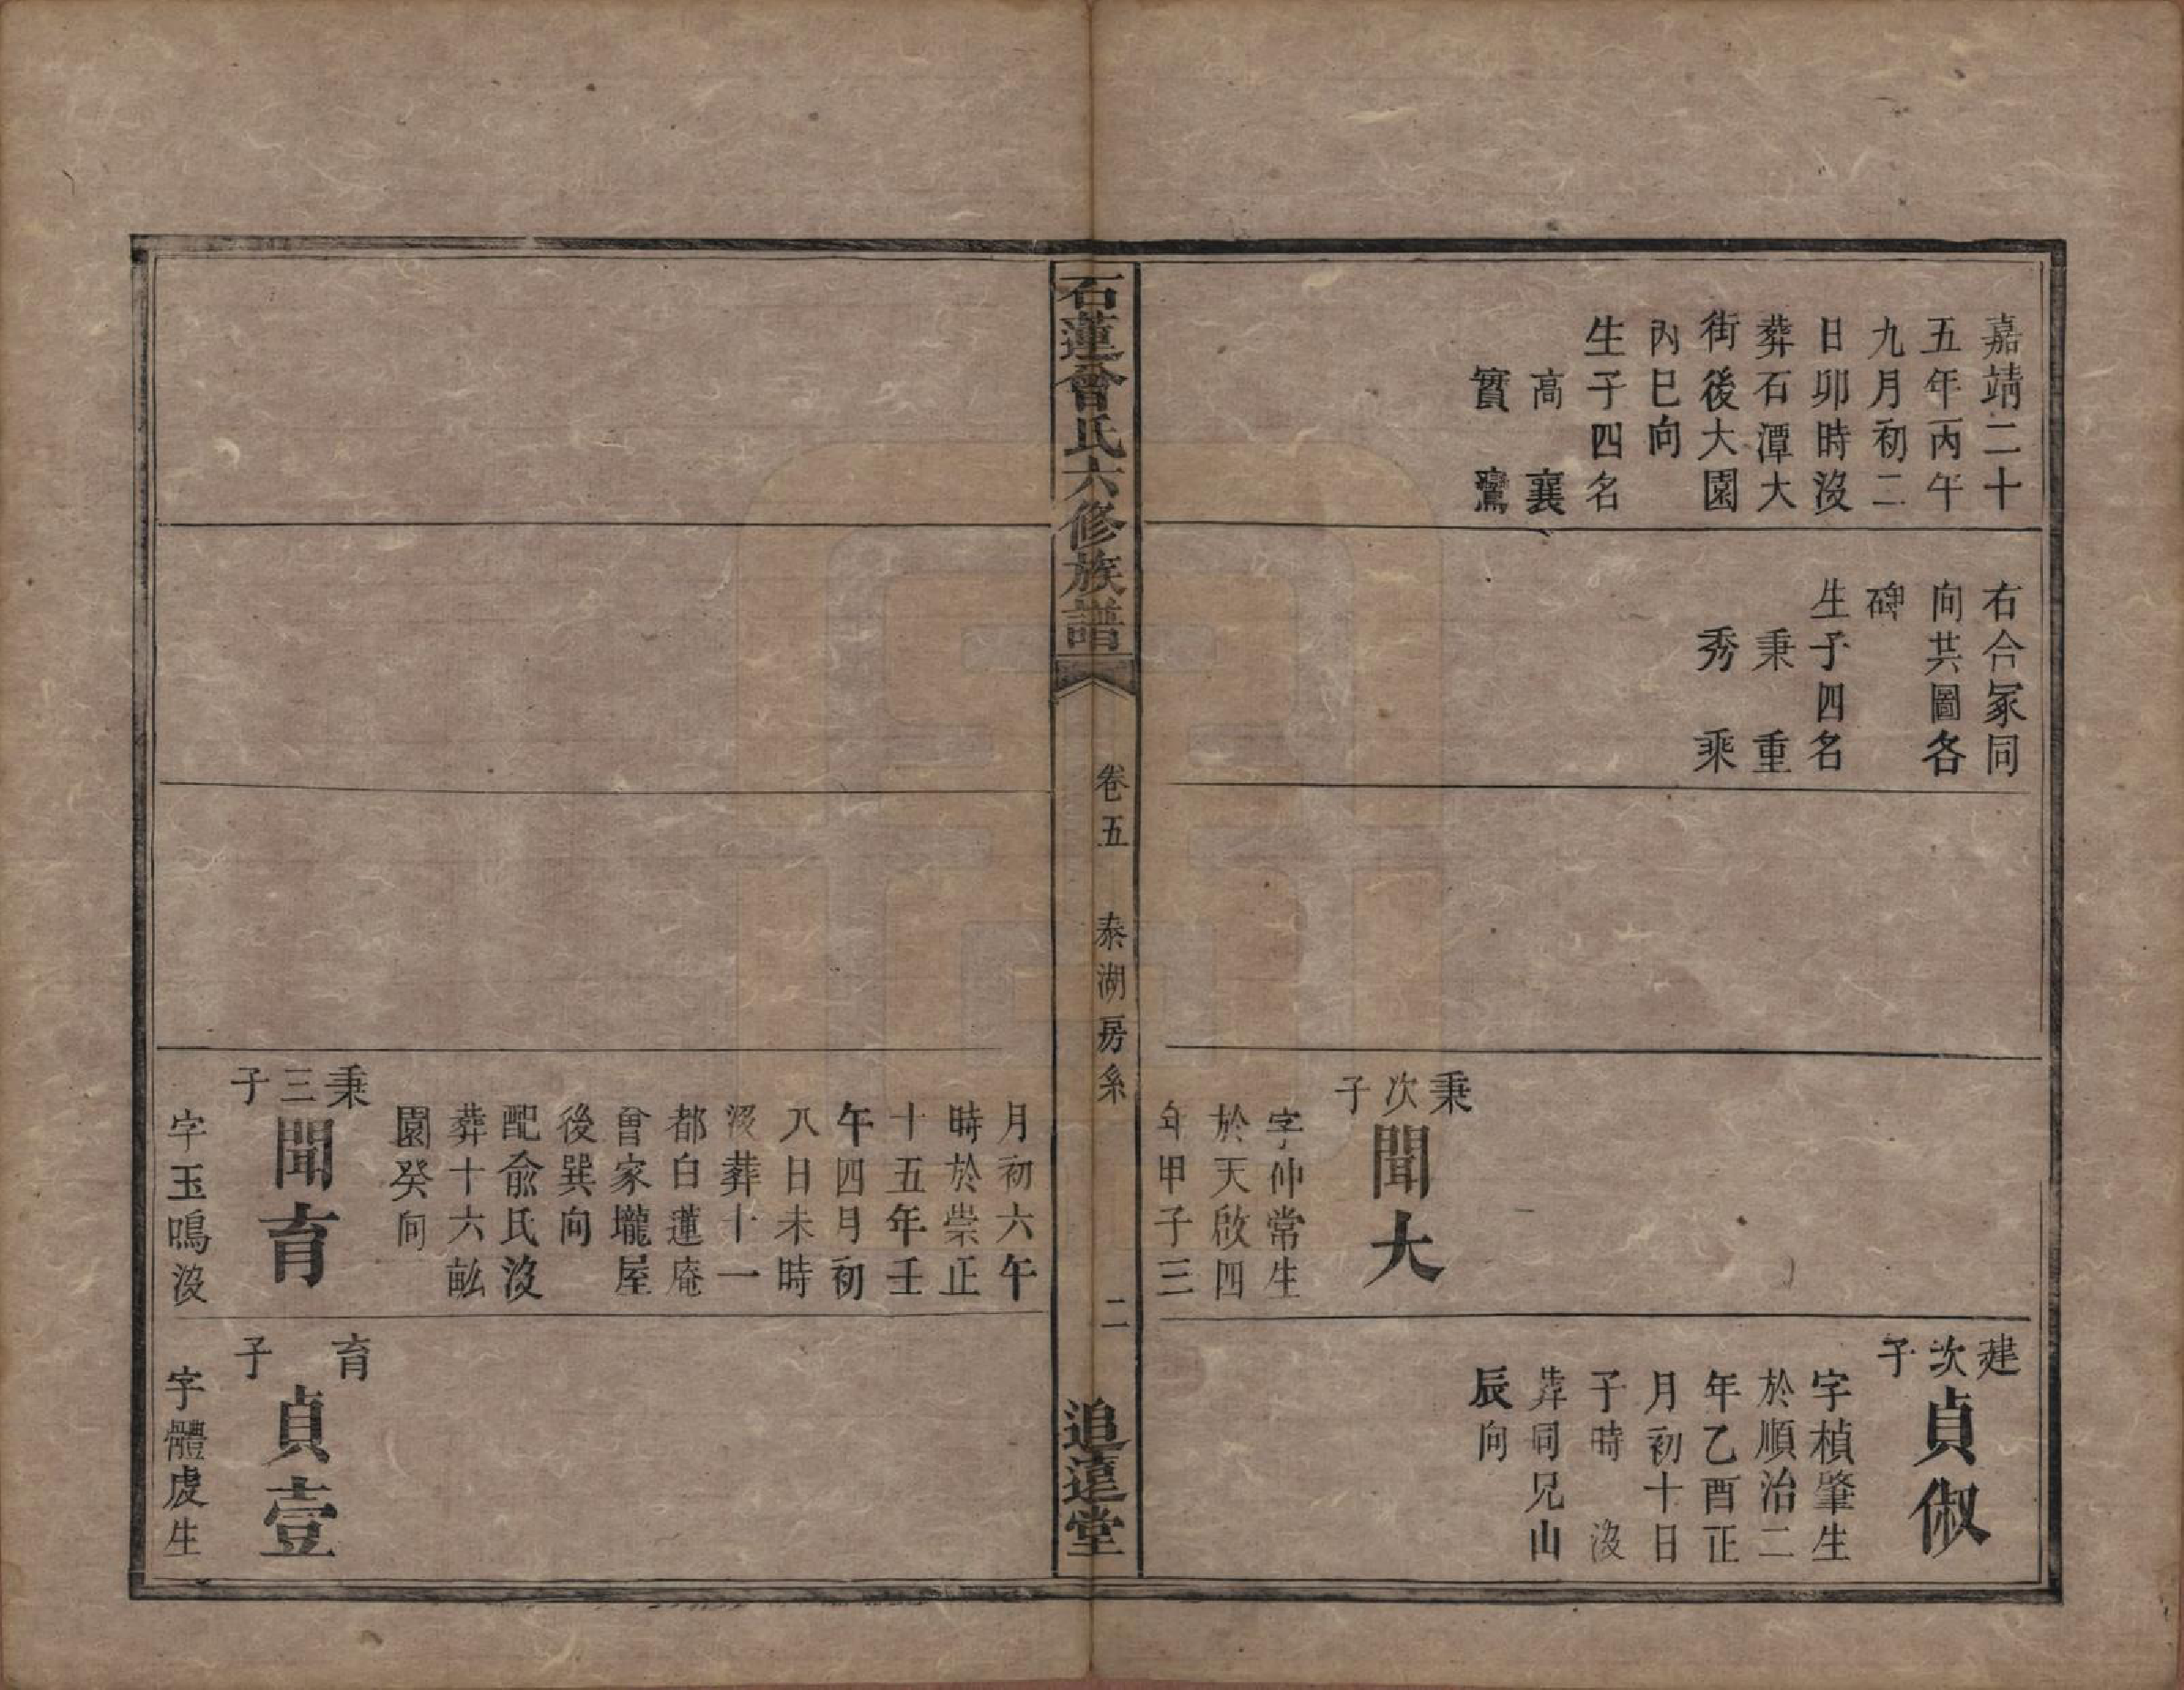 嘉靖二十
五年丙午
九月初二
日卯時沒
葬石潭大
街後大園
丙巳向
生子四名
高 襄
實 鸞
右合冢同
向共圖各
碑
生子四名
秉 重
秀 乘
秉次子
聞大
字仲常生
於天啟四
年甲子三
建次子
貞俶
字楨肇生
於順治二
年乙酉正
月初十日
子時 沒
葬同兄山
辰向
石蓮曾氏六修族譜
卷五 泰湖房系 二
追遠堂
月初六午
時於崇正
十五年壬
午四月初
八日未時
沒葬十一
都白蓮庵
曾家壠屋
後巽向
配俞氏沒
葬十六畝
園癸向
秉三子
聞育
字玉鳴沒
育子
貞壹
字體虔生